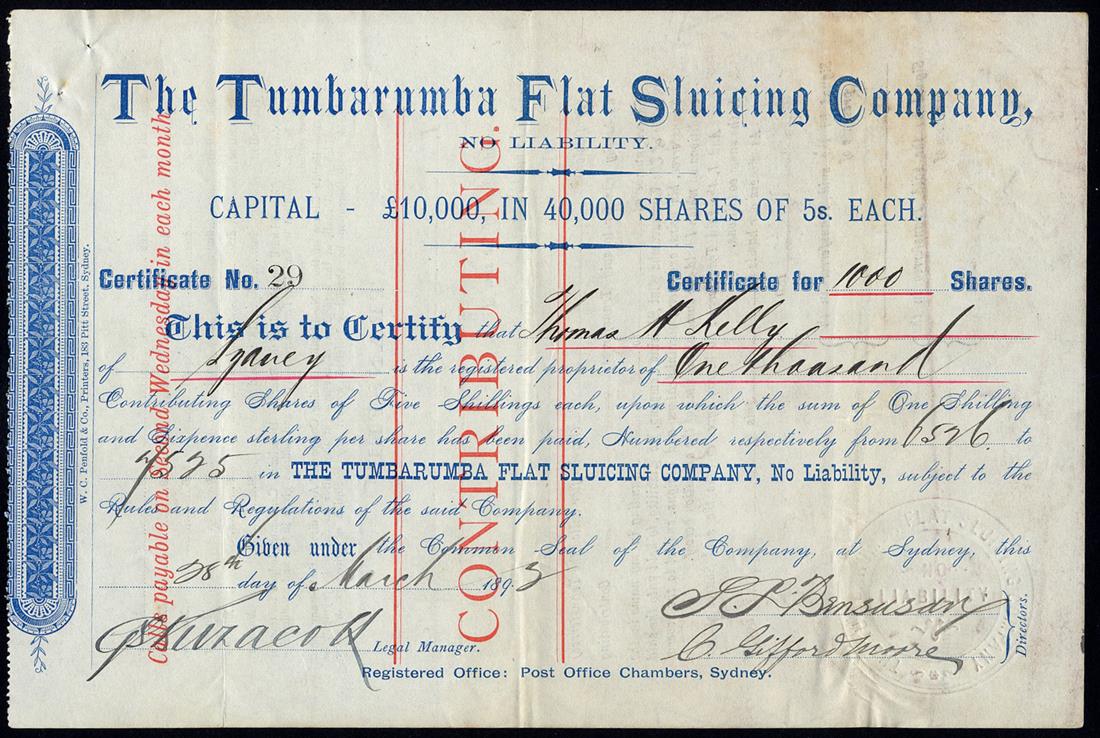 The Tumbarumba Flat Sluicing Company,
NO LIABILITY.
CAPITAL - £10,000, IN 40,000 SHARES OF 5s. EACH.
Certificate No. 29 Certificate for 1000 Shares.
This is to Certify that Thomas H Kelly
of Sydney is the registered proprietor of One thousand
Contributing Shares of Five Shillings each, upon which the sum of One Shilling
and Sixpence sterling per share has been paid, Numbered respectively from 6526 to
7525 in THE TUMBARUMBA FLAT SLUICING COMPANY, No Liability, subject to the
Rules and Regulations of the said Company.
Given under the Common Seal of the Company, at Sydney, this
28th day of March 1893
Legal Manager.
S L Bensusan
C. Gifford Moore
Directors.
Registered Office: Post Office Chambers, Sydney.
W. C. Penfold & Co., Printers, 183 Pitt Street, Sydney.
Calls payable on Second Wednesday in each month
CONTRIBUTING.
LIABILITY